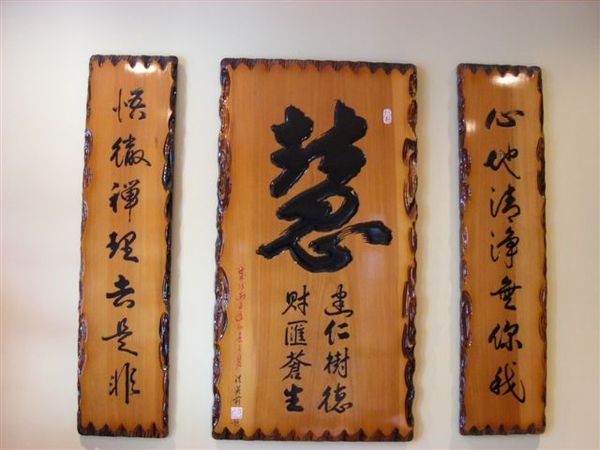 心地清淨無你我
慧
建仁樹德
財匯蒼生
悟徹禪理去是非